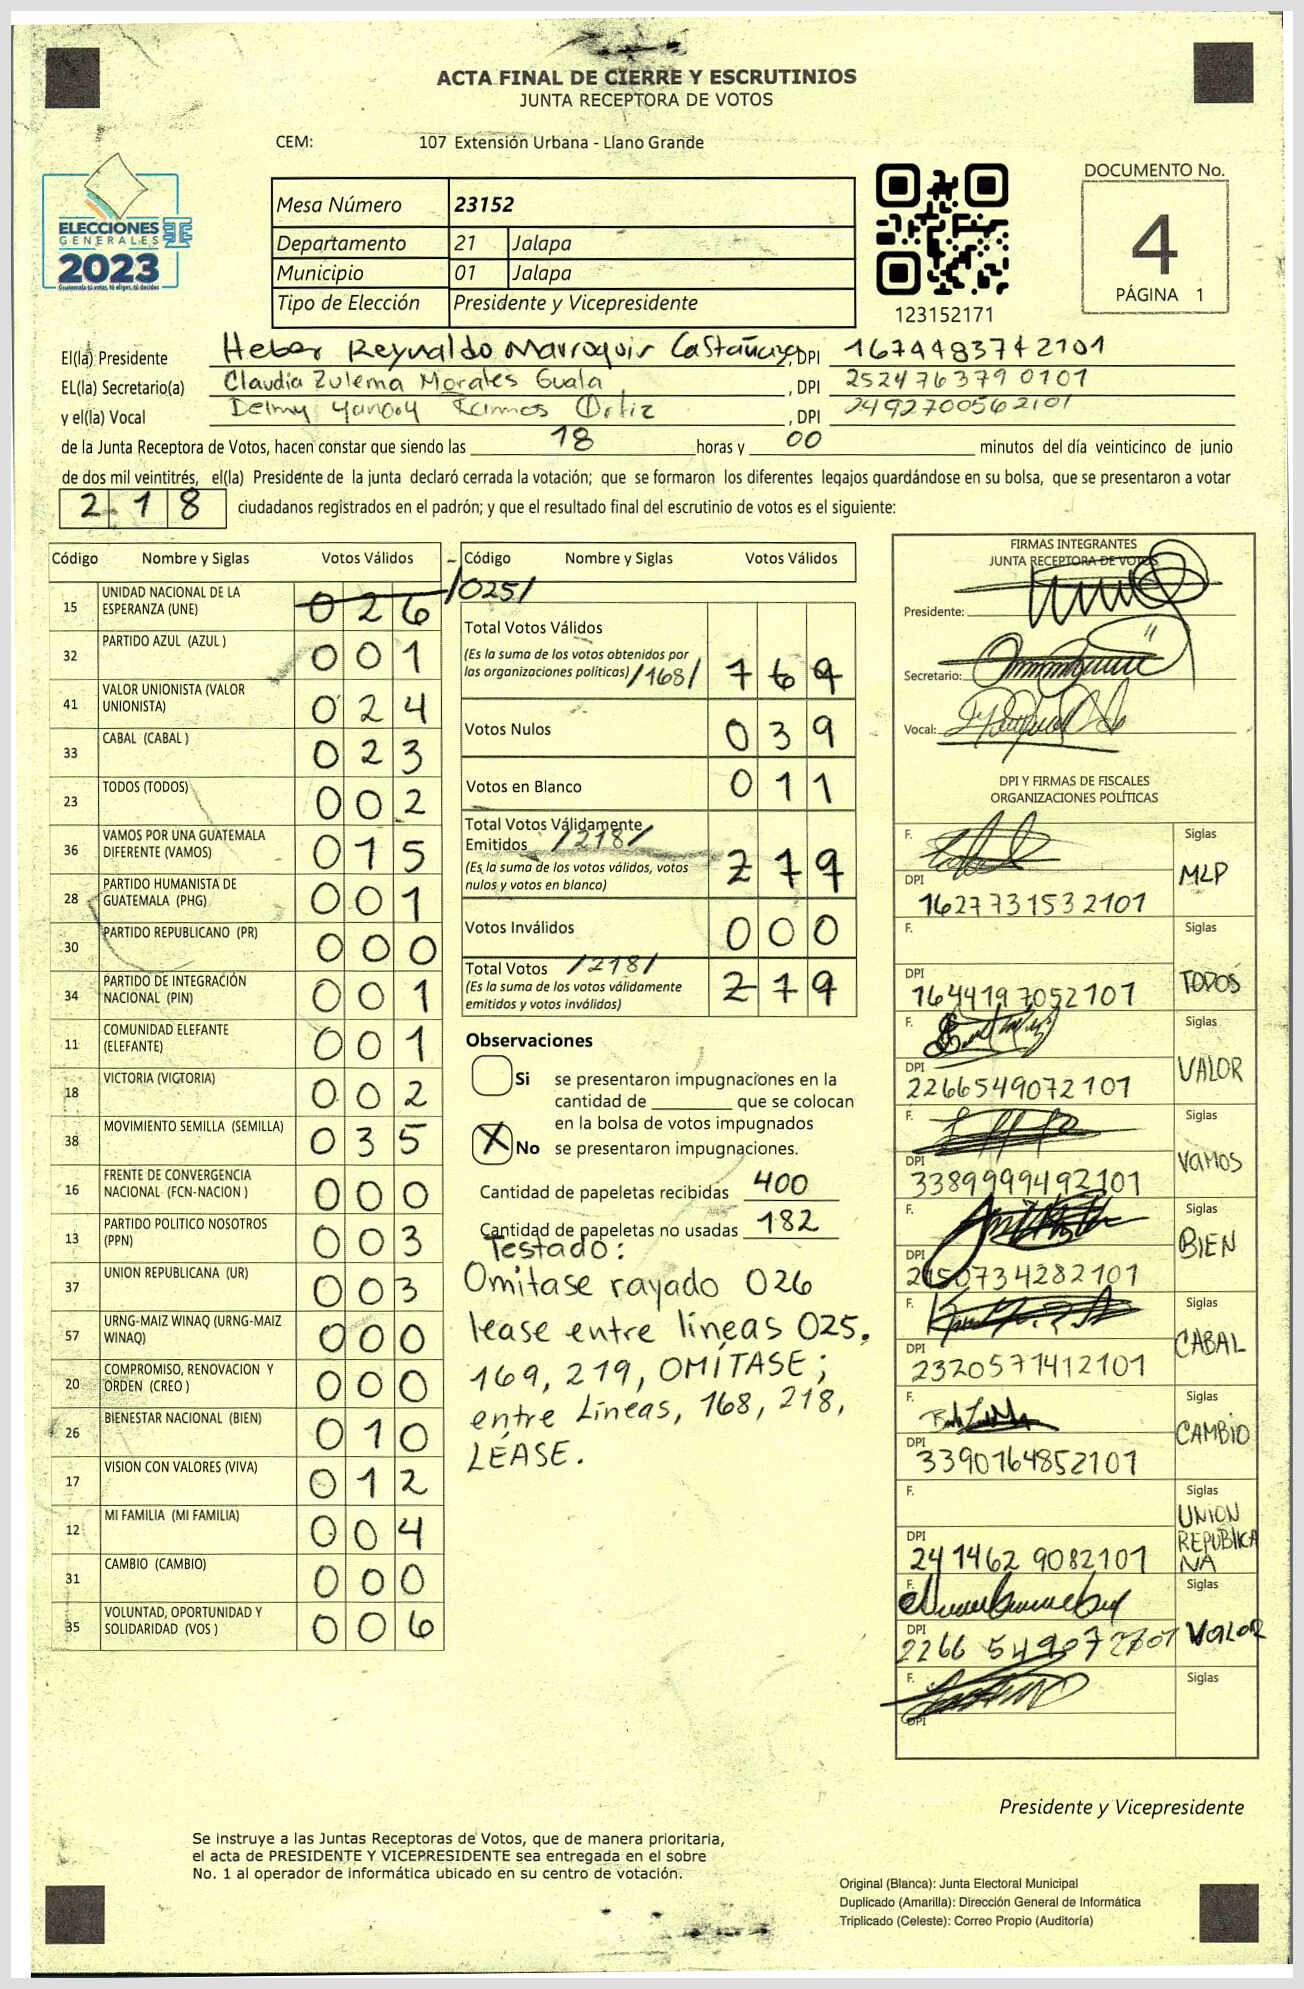 ACTA FINAL DE CIERRE Y ESCRUTINIOS
JUNTA RECEPTORA DE VOTOS
CEM: 107 Extensión Urbana - Llano Grande
ELECCIONES
GENERALES
2023
Guatemala tú votas, tú eliges, tú decides
Mesa Número 23152
Departamento 21 Jalapa
Municipio 01 Jalapa
Tipo de Elección Presidente y Vicepresidente
123152171
DOCUMENTO No.
4
PÁGINA 1
El(la) Presidente Heber Reynaldo Marroquin Castañaza, DPI 1674483742101
EL(la) Secretario(a) Claudia Zulema Morales Guala, DPI 2524763790101
y el(la) Vocal Delmy Yanory Ramos Ortiz, DPI 2492700562101
de la Junta Receptora de Votos, hacen constar que siendo las 18 horas y 00 minutos del día veinticinco de junio
de dos mil veintitrés, el(la) Presidente de la junta declaró cerrada la votación; que se formaron los diferentes legajos guardándose en su bolsa, que se presentaron a votar
218 ciudadanos registrados en el padrón; y que el resultado final del escrutinio de votos es el siguiente:
Código Nombre y Siglas Votos Válidos
15 UNIDAD NACIONAL DE LA ESPERANZA (UNE) 026 /025/
32 PARTIDO AZUL (AZUL ) 001
41 VALOR UNIONISTA (VALOR UNIONISTA) 024
33 CABAL (CABAL ) 023
23 TODOS (TODOS) 002
36 VAMOS POR UNA GUATEMALA DIFERENTE (VAMOS) 015
28 PARTIDO HUMANISTA DE GUATEMALA (PHG) 001
30 PARTIDO REPUBLICANO (PR) 000
34 PARTIDO DE INTEGRACIÓN NACIONAL (PIN) 001
11 COMUNIDAD ELEFANTE (ELEFANTE) 001
18 VICTORIA (VICTORIA) 002
38 MOVIMIENTO SEMILLA (SEMILLA) 035
16 FRENTE DE CONVERGENCIA NACIONAL (FCN-NACION ) 000
13 PARTIDO POLITICO NOSOTROS (PPN) 003
37 UNION REPUBLICANA (UR) 003
57 URNG-MAIZ WINAQ (URNG-MAIZ WINAQ) 000
20 COMPROMISO, RENOVACION Y ORDEN (CREO ) 000
26 BIENESTAR NACIONAL (BIEN) 010
17 VISION CON VALORES (VIVA) 012
12 MI FAMILIA (MI FAMILIA) 004
31 CAMBIO (CAMBIO) 000
35 VOLUNTAD, OPORTUNIDAD Y SOLIDARIDAD (VOS ) 006
Código Nombre y Siglas Votos Válidos
Total Votos Válidos
(Es la suma de los votos obtenidos por
las organizaciones políticas) /168/ 169
Votos Nulos 039
Votos en Blanco 011
Total Votos Válidamente
Emitidos /218/
(Es la suma de los votos válidos, votos
nulos y votos en blanco) 219
Votos Inválidos 000
Total Votos /218/
(Es la suma de los votos válidamente
emitidos y votos inválidos) 219
Observaciones
Si se presentaron impugnaciones en la
cantidad de ________ que se colocan
en la bolsa de votos impugnados
X No se presentaron impugnaciones.
Cantidad de papeletas recibidas 400
Cantidad de papeletas no usadas 182
Testado:
Omitase rayado 026
lease entre líneas 025.
169, 219, OMÍTASE;
entre Líneas, 168, 218,
LÉASE.
FIRMAS INTEGRANTES
JUNTA RECEPTORA DE VOTOS
Presidente:
Secretario:
Vocal:
DPI Y FIRMAS DE FISCALES
ORGANIZACIONES POLÍTICAS
F. Siglas
DPI 1627731532101 MLP
F. Siglas
DPI 1644197052101 TODOS
F. Siglas
DPI 2266549072101 VALOR
F. Siglas
DPI 3389999492101 VAMOS
F. Siglas
DPI 2150734282101 BIEN
F. Siglas
DPI 2320571412101 CABAL
F. Siglas
DPI 3390164852101 CAMBIO
F. Siglas
DPI 2414629082101 UNION REPUBLICANA
F. Siglas
DPI 2266549072101 VALOR
F. Siglas
DPI
Presidente y Vicepresidente
Se instruye a las Juntas Receptoras de Votos, que de manera prioritaria,
el acta de PRESIDENTE Y VICEPRESIDENTE sea entregada en el sobre
No. 1 al operador de informática ubicado en su centro de votación.
Original (Blanca): Junta Electoral Municipal
Duplicado (Amarilla): Dirección General de Informática
Triplicado (Celeste): Correo Propio (Auditoría)